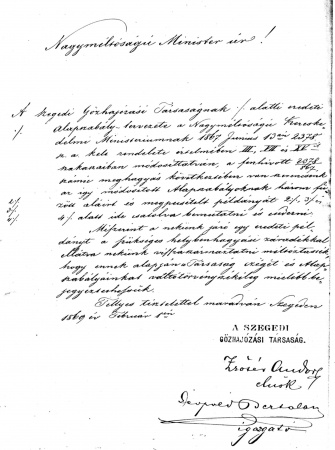 Nagyméltóságú Minister úr!
A szegedi Gőzhajózási Társaságnak 1/. alatti eredeti
1/. Alapszabály-tervezete a Nagyméltóságú Kereske-
delmi Ministeriumnak 1867 Június 13án 2378
sz. a. kelt rendelete értelmében III, VII és XV
szakaszaiban módosíttatván, a fenhivott 2378/867
számú meghagyás következtében van szerencsénk
az így módosított Alapszabályoknak három fű-
2/. zött aláirt és megpecsételt példányát 2/. 3/. és
3/. 4/. alatt ide csatolva bemutatni és esedezni
4/.
Miszerint a nekünk járó egy eredeti pél-
dányt a szükséges helybenhagyási záradékkal
ellátva nekünk visszaszármaztatni méltóztassék,
hogy ennek alapján a Társaság czégét és Alap-
szabályainkat váltótörvényszékileg mielőbb be-
jegyeztethessük.
Teljes tisztelettel maradván Szegeden
1869 év Február
A SZEGEDI
GŐZHAJÓZÁSI TÁRSASÁG.
Zsótér Andor
elnök
Leopold Bertalan
igazgató